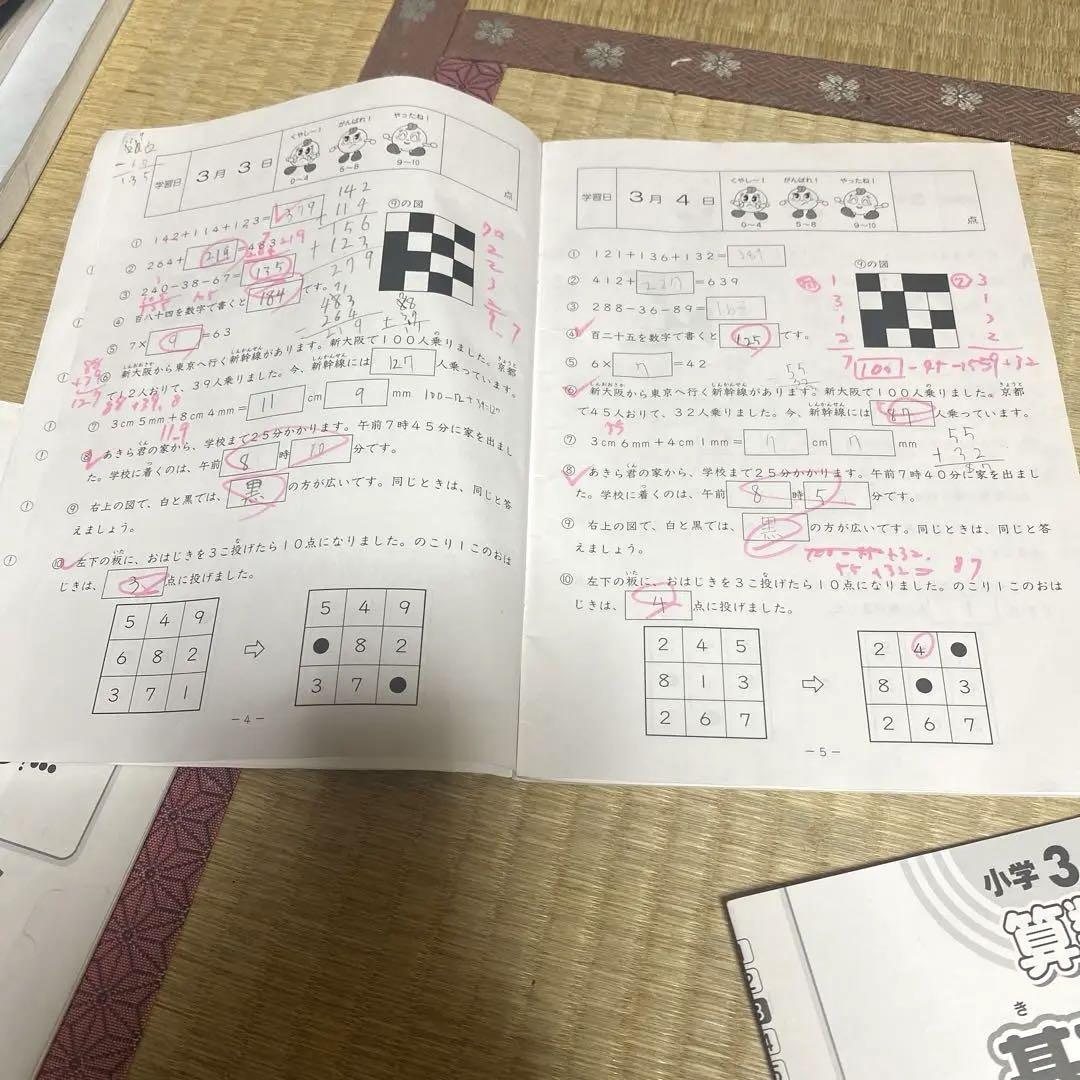 学習日 3月 3日
くやし〜! がんばれ! やったね!
0〜4 5〜8 9〜10
点
① 142+114+123=379
142
+114
156
+123
279
⑨の図
② 264+219=483
③ 240−38−67=135
④ 百八十四を数字で書くと184です。
⑤ 7×9=63
483
264
219
⑥ 新大阪から東京へ行く新幹線があります。新大阪で100人乗りました。京都
で12人おりて、39人乗りました。今、新幹線には127人乗っています。
⑦ 3cm5mm+8cm4mm=11cm9mm
⑧ あきら君の家から、学校まで25分かかります。午前7時45分に家を出まし
た。学校に着くのは、午前8時10分です。
⑨ 右上の図で、白と黒では、黒の方が広いです。同じときは、同じと答
えましょう。
⑩ 左下の板に、おはじきを3こ投げたら10点になりました。のこり1このおは
じきは、3点に投げました。
5 4 9
6 8 2
3 7 1
⇨
5 4 9
● 8 2
3 7 ●
−4−
学習日 3月 4日
くやし〜! がんばれ! やったね!
0〜4 5〜8 9〜10
点
① 121+136+132=389
⑨の図
② 412+227=639
③ 288−36−89=163
④ 百二十五を数字で書くと125です。
⑤ 6×7=42
⑥ 新大阪から東京へ行く新幹線があります。新大阪で100人乗りました。京都
で45人おりて、32人乗りました。今、新幹線には87人乗っています。
⑦ 3cm6mm+4cm1mm=7cm7mm
55
+32
⑧ あきら君の家から、学校まで25分かかります。午前7時40分に家を出まし
た。学校に着くのは、午前8時5分です。
⑨ 右上の図で、白と黒では、黒の方が広いです。同じときは、同じと答
えましょう。
55+32=87
⑩ 左下の板に、おはじきを3こ投げたら10点になりました。のこり1このおは
じきは、4点に投げました。
2 4 5
8 1 3
2 6 7
⇨
2 4 ●
8 ● 3
2 6 7
−5−
小学3
算
き